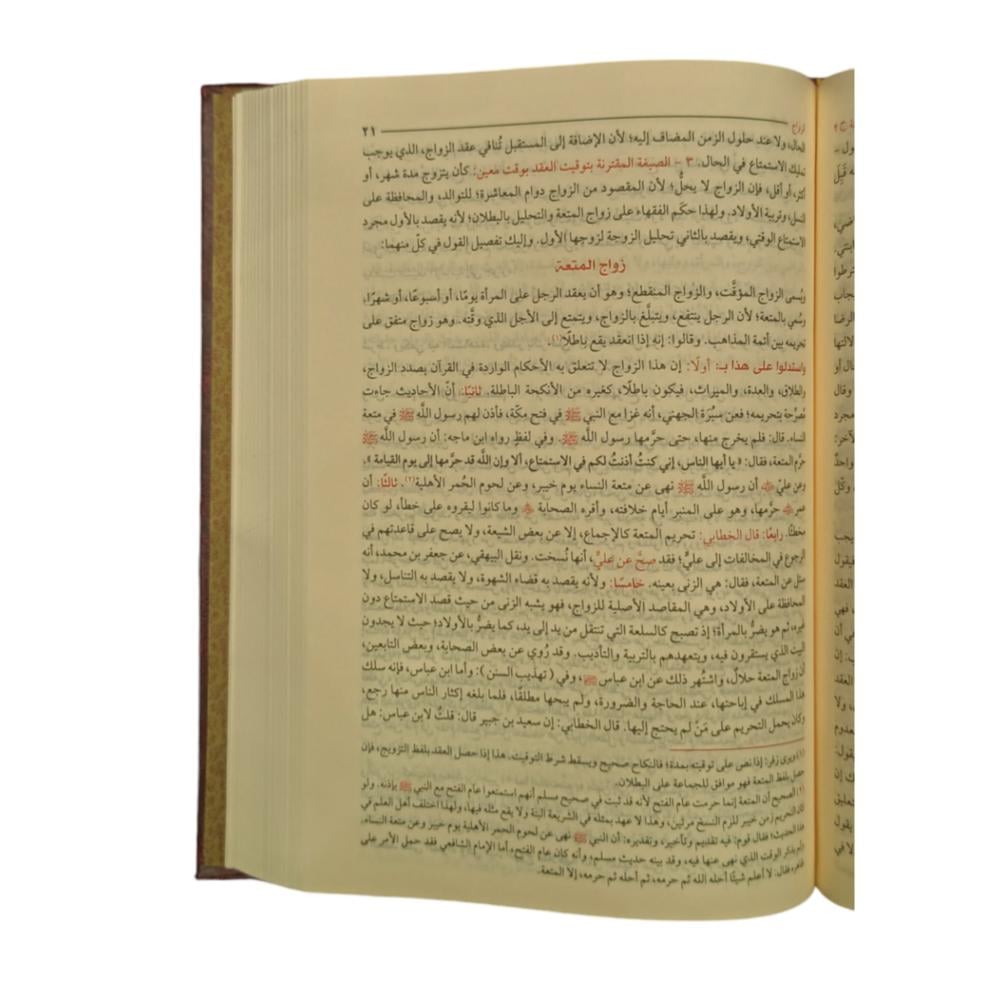 الزواج ٢١
الحال، ولا عند حلول الزمن المضاف إليه؛ لأن الإضافة إلى المستقبل تُنافي عقد الزواج، الذي يوجب
تمليك الاستمتاع في الحال. ٣ - الصيغة المقترنة بتوقيت العقد بوقت معين: كأن يتزوج مدة شهر، أو
أكثر، أو أقل، فإن الزواج لا يحلُّ؛ لأن المقصود من الزواج دوام المعاشرة؛ للتوالد، والمحافظة على
النسل، وتربية الأولاد. ولهذا حكَم الفقهاء على زواج المتعة والتحليل بالبطلان؛ لأنه يقصد بالأول مجرد
الاستمتاع الوقتي؛ ويقصد بالثاني تحليل الزوجة لزوجها الأول. وإليك تفصيل القول في كلّ منهما:
زواج المتعة
ويُسمى الزواج المؤقَّت، والزواج المنقطع؛ وهو أن يعقد الرجل على المرأة يومًا، أو أسبوعًا، أو شهرًا.
وسُمي بالمتعة؛ لأن الرجل ينتفع، ويتبلَّغ بالزواج، ويتمتع إلى الأجل الذي وقَّته. وهو زواج متفق على
تحريمه بين أئمة المذاهب. وقالوا: إنه إذا انعقد يقع باطلًا(١).
واستدلوا على هذا بـ: أولًا: إن هذا الزواج لا تتعلق به الأحكام الواردة في القرآن بصدد الزواج،
والطلاق، والعدة، والميراث، فيكون باطلًا، كغيره من الأنكحة الباطلة. ثانيًا: أنّ الأحاديث جاءت
مُصرِّحة بتحريمه؛ فعن سبْرَة الجهني، أنه غزا مع النبي ﷺ في فتح مكّة، فأذن لهم رسول اللَّه ﷺ في متعة
النساء. قال: فلم يخرج منها، حتى حرَّمها رسول اللَّه ﷺ. وفي لفظٍ رواه ابن ماجه: أن رسول اللَّه ﷺ
حرَّم المتعة، فقال: « يا أيها الناس، إني كنتُ أذنتُ لكم في الاستمتاع، ألا وإن اللَّه قد حرَّمها إلى يوم القيامة ».
وعن عليّ ﷺ أن رسول اللَّه ﷺ نهى عن متعة النساء يوم خيبر، وعن لحوم الحُمر الأهلية(٢). ثالثًا: أن
عمر حرَّمها، وهو على المنبر أيام خلافته، وأقره الصحابة وما كانوا ليقروه على خطأ، لو كان
مخطئًا. رابعًا: قال الخطابي: تحريم المتعة كالإجماع، إلا عن بعض الشيعة، ولا يصح على قاعدتهم في
الرجوع في المخالفات إلى عليٍّ؛ فقد صحَّ عن عليٍّ، أنها نُسخت. ونقل البيهقي، عن جعفر بن محمد، أنه
سئل عن المتعة، فقال: هي الزنى بعينه. خامسًا: ولأنه يقصد به قضاء الشهوة، ولا يقصد به التناسل، ولا
المحافظة على الأولاد، وهي المقاصد الأصلية للزواج، فهو يشبه الزنى من حيث قصد الاستمتاع دون
غيره، ثم هو يضرُّ بالمرأة؛ إذ تصبح كالسلعة التي تنتقل من يد إلى يد، كما يضرُّ بالأولاد؛ حيث لا يجدون
البيت الذي يستقرون فيه، ويتعهدهم بالتربية والتأديب. وقد رُوي عن بعض الصحابة، وبعض التابعين،
أن زواج المتعة حلال، واشتُهر ذلك عن ابن عباس، وفي ( تهذيب السنن ): وأما ابن عباس، فإنه سلك
هذا المسلك في إباحتها، عند الحاجة والضرورة، ولم يبحها مطلقًا، فلما بلغه إكثار الناس منها رجع،
وكان يحمل التحريم على مَنْ لم يحتج إليها. قال الخطابي: إن سعيد بن جبير قال: قلتُ لابن عباس: هل
(١) ويرى زفر: إذا نص على توقيته بمدة؛ فالنكاح صحيح ويسقط شرط التوقيت. هذا إذا حصل العقد بلفظ التزويج، فإن
حصل بلفظ المتعة فهو موافق للجماعة على البطلان.
(٢) الصحيح أن المتعة إنما حرمت عام الفتح لأنه قد ثبت في صحيح مسلم أنهم استمتعوا عام الفتح مع النبي ﷺ بإذنه. ولو
كان التحريم زمن خيبر للزم النسخ مرتين، وهذا لا عهد بمثله في الشريعة البتة ولا يقع مثله فيها، ولهذا اختلف أهل العلم في
هذا الحديث؛ فقال قوم: فيه تقديم وتأخير، وتقديره: أن النبي ﷺ نهى عن لحوم الحمر الأهلية يوم خيبر وعن متعة النساء.
ولم يذكر الوقت الذي نهى عنها فيه، وقد بينه حديث مسلم، وأنه كان عام الفتح، أما الإمام الشافعي فقد حمل الأمر على
ظاهره فقال: لا أعلم شيئًا أحله الله ثم حرمه، ثم أحله ثم حرمه، إلا المتعة.